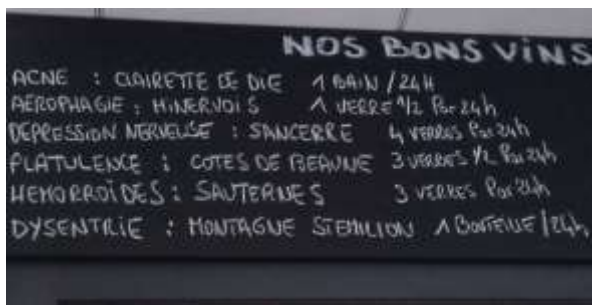 NOS BONS VINS
ACNE : CLAIRETTE DE DIE 1 BAIN / 24H
AEROPHAGIE : MINERVOIS 1 VERRE 1/2 Par 24h
DEPRESSION NERVEUSE : SANCERRE 4 VERRES Par 24h
FLATULENCE : COTES DE BEAUNE 3 VERRES 1/2 Par 24h
HEMORROÏDES : SAUTERNES 3 VERRES Par 24h
DYSENTRIE : MONTAGNE ST EMILION 1 BOUTEILLE / 24h